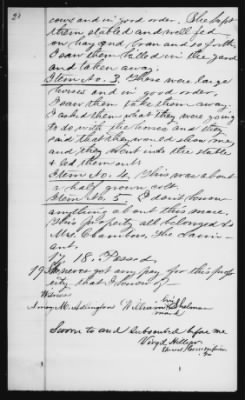 cows and in good order. She kept
them stabled and well fed
on hay and bran and so forth
I saw them killed in the yard
and taken away.
Item No. 3. These were large
horses and in good order.
I saw them take them away.
I asked them what they were going
to do with the horses and they
said that they would show me,
and they went into the stable
& led them out.
Item No. 4. This was about
a half grown colt.
Item No. 5. I don't know
anything about this mare.
This property all belonged to
Mrs. Chambers, the claim-
ant.
17. 18. Passed.
19. She never got any pay for this prop-
erty that I know of.
Witness
his
Amory M. Adlington William
mark
Sworn to and subscribed before me
Virgil Hillyer